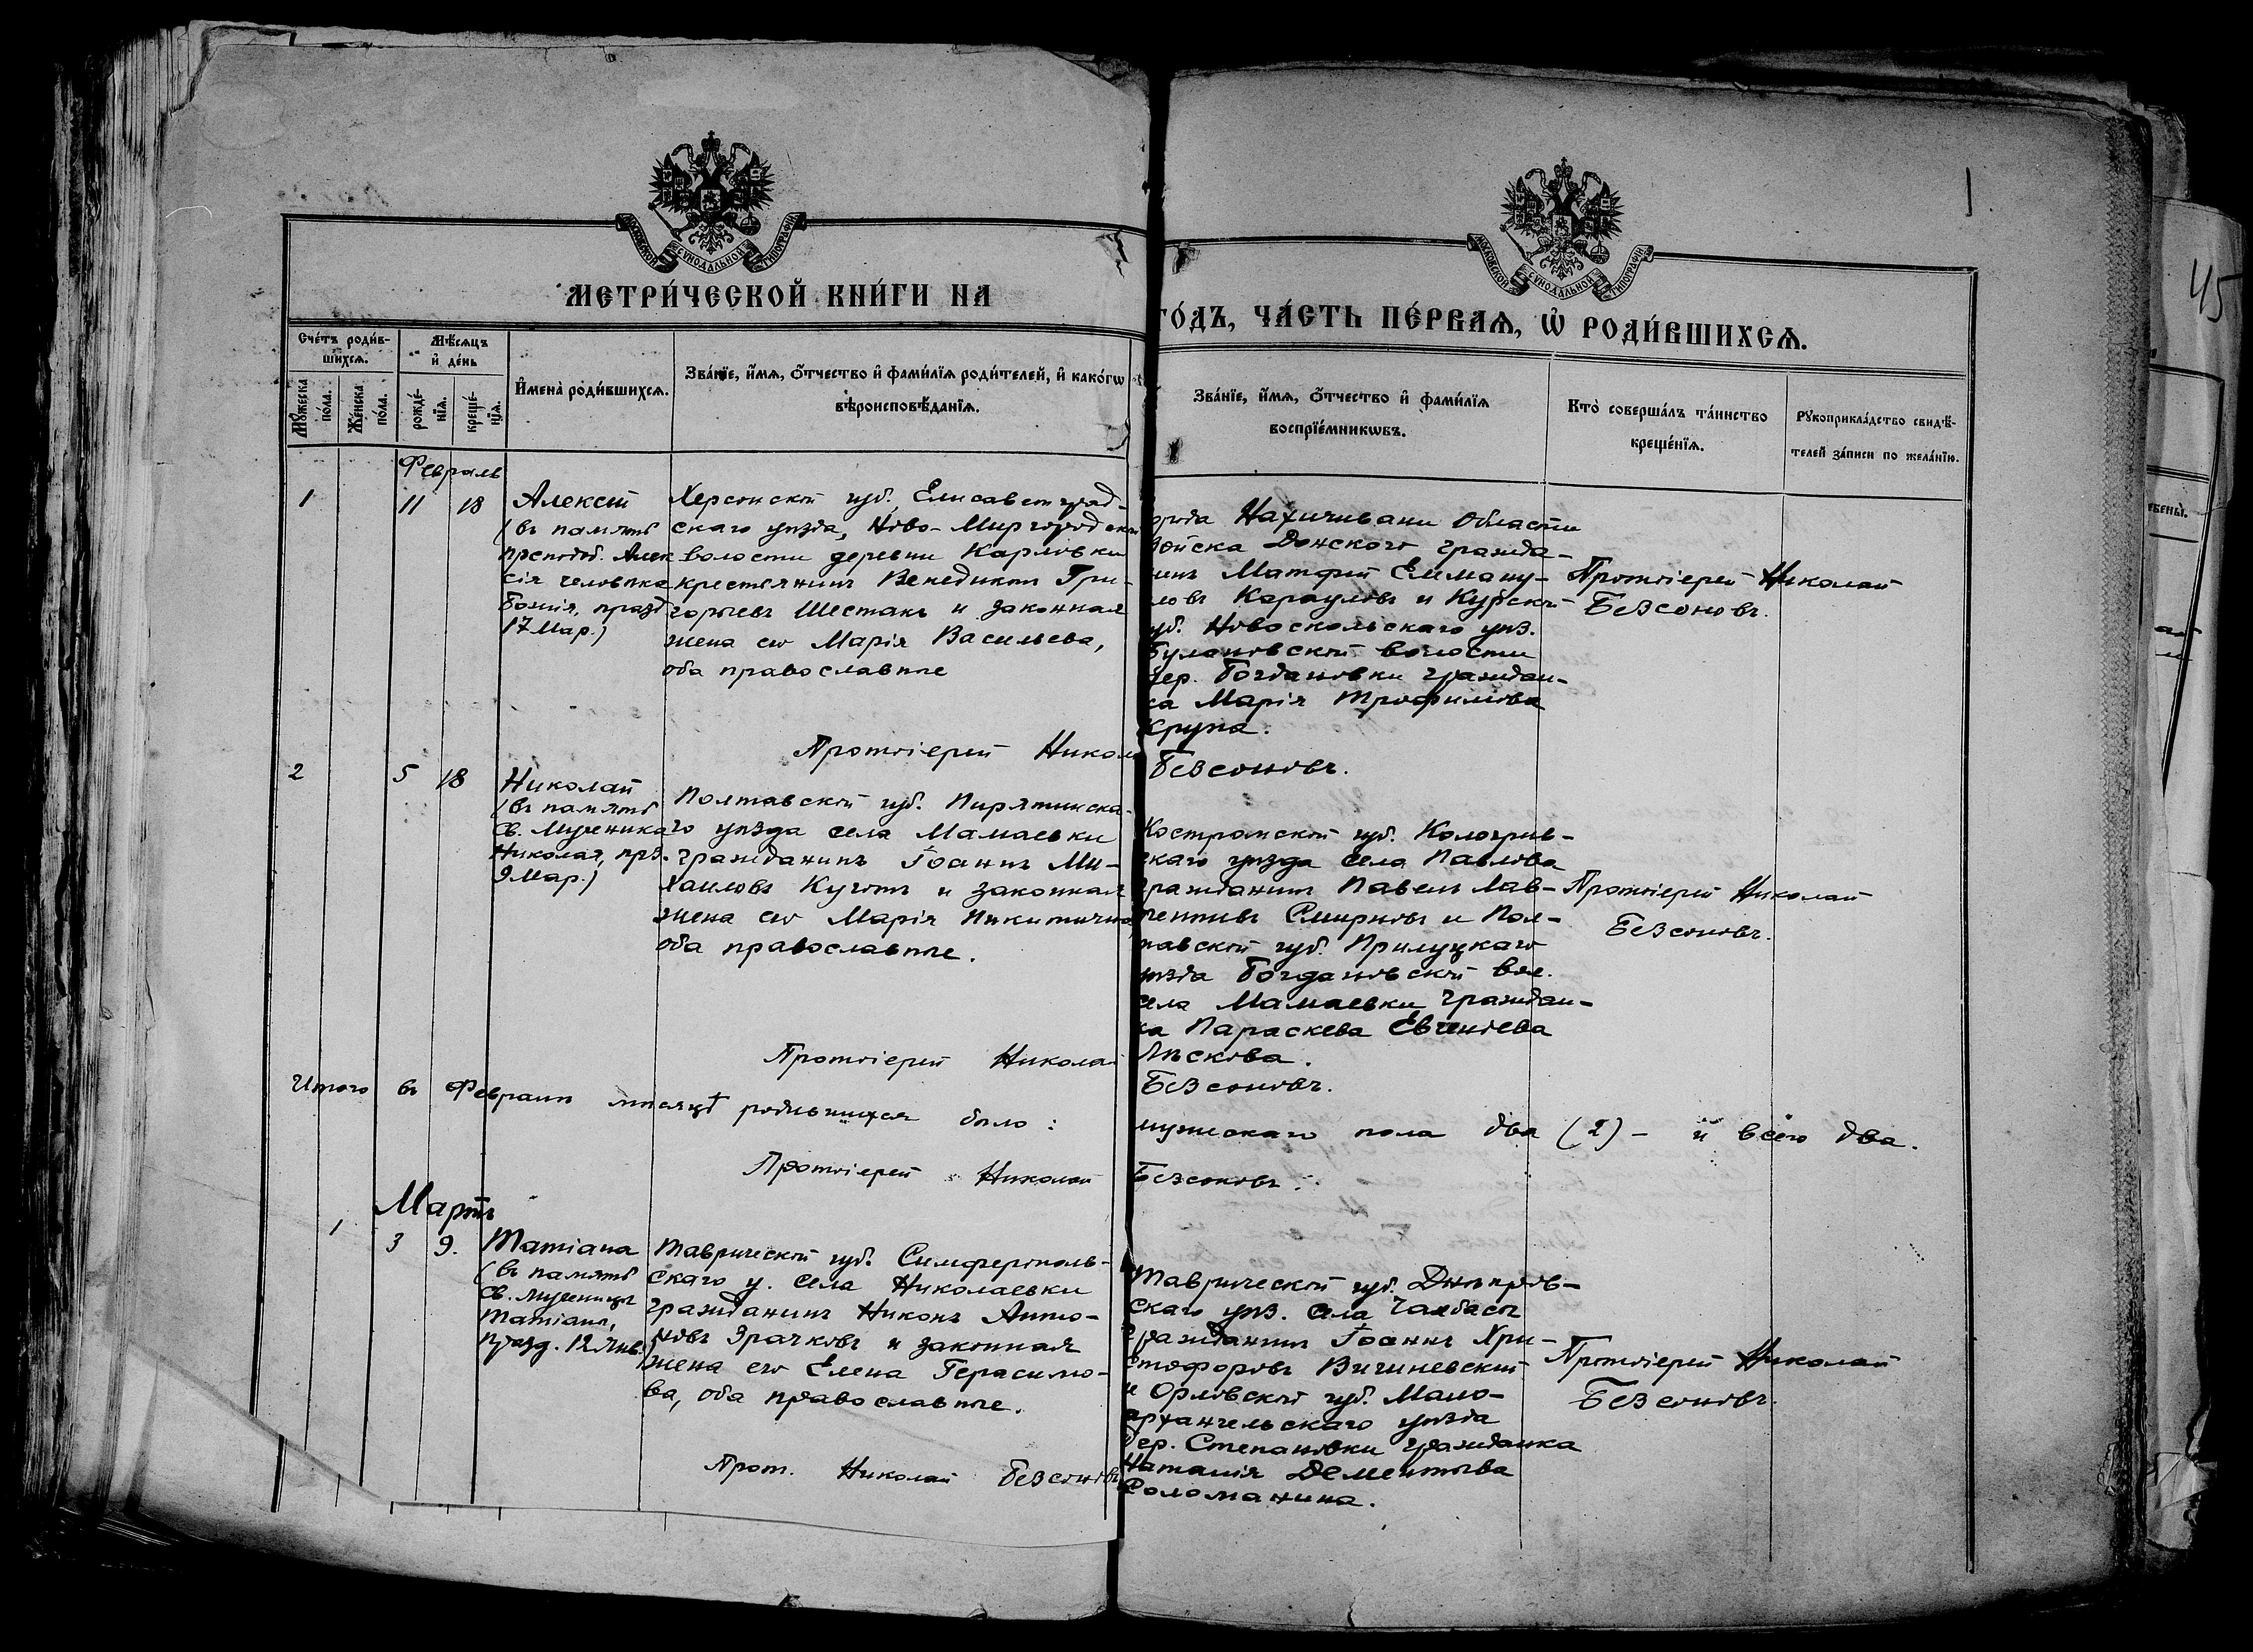 МОСКОВСКОЙ СѴНОДАЛЬНОЙ ТИПОГРАФІИ
МОСКОВСКОЙ СѴНОДАЛЬНОЙ ТИПОГРАФІИ
МЕТРИ́ЧЕСКОЙ КНИ́ГИ НА
ГО́ДЪ, ЧА́СТЬ ПЕ́РВАѦ, Ѽ РОДИ́ВШИХСѦ.
45
Сче́тъ роди́в-
шихсѧ.
Мꙋжеска
по́ла.
Же́нска
по́ла.
Мѣ́сѧцъ
и҆ де́нь
рожде́-
нїѧ.
креще́-
нїѧ.
И҆мена̀ роди́вшихсѧ.
Зва́нїе, и҆́мѧ, ѻ҆́тчество и҆ фами́лїѧ роди́телей, и҆ како́гѡ
вѣроисповѣ́данїѧ.
Зва́нїе, и҆́мѧ, ѻ҆́тчество и҆ фами́лїѧ
воспрїе́мникѡвъ.
Кто̀ соверша́лъ та́инство
креще́нїѧ.
Рꙋкоприкла́дство свидѣ́-
телей за́писи по жела́нїю.
Февраль
1 11 18
Алексій
(въ память
преподоб. Алек
сія человѣка
Божія, празд
17 Мар.)
Херсонской губ. Елисаветград-
скаго уѣзда, Ново-Миргородской
волости деревни Карловки
крестьянинъ Венедиктъ Гри-
горьевъ Шестакъ и законная
жена его Марія Васильева,
оба православные
орода Нахичивани Области
Войска Донского гражда-
нинъ Матфей Еммануи-
ловъ Карауловъ и Курской
уб. Новоскольскаго уѣз.
Булановской волости
дер. Богдановки граждан-
ка Марія Трофимова
Крупа.
Протоіерей Николай
Безсоновъ.
Протоіерей Никол
Безсоновъ.
2 5 18
Николай
(въ память
св. Мученика
Николая, прз.
9 Мар.)
Полтавской губ. Пирятинска-
го уѣзда села Мамаевки
гражданинъ Іоаннъ Ми-
хаиловъ Куготъ и законная
жена его Марія Никитична
оба православные.
Костромской губ. Кологрив-
скаго уѣзда села Павлова
гражданинъ Павелъ Лав-
рентьевъ Смирновъ и Пол-
тавской губ. Прилуцкаго
уѣзда Богдановской вол.
села Мамаевки граждан-
ка Параскева Евгеніева
Лѣскова.
Протоіерей Николай
Безсоновъ.
Протоіерей Николай
Безсоновъ.
Итого въ Февралѣ мѣсяцѣ родившихся было:
мужескаго пола два (2) - и всего два.
Протоіерей Николай
Безсоновъ.
Мартъ
1 3 9.
Татіана
(въ память
св. мученицы
Татіаны,
празд. 12 Янв.)
Таврической губ. Симферополь-
скаго у. села Николаевки
гражданинъ Никонъ Анто-
новъ Эрачковъ и законная
жена его Елена Герасимо-
ва, оба православные.
Таврической губ. Днѣпров-
скаго уѣз. села Чалбасы
гражданинъ Іоаннъ Хри-
стофоровъ Вичиневскій
и Орловской губ. Мало-
архангельскаго уѣзда
дер. Степановки гражданка
Наталія Дементьева
Соломанина.
Протоіерей Николай
Безсоновъ.
Прот. Николай Безсоновъ